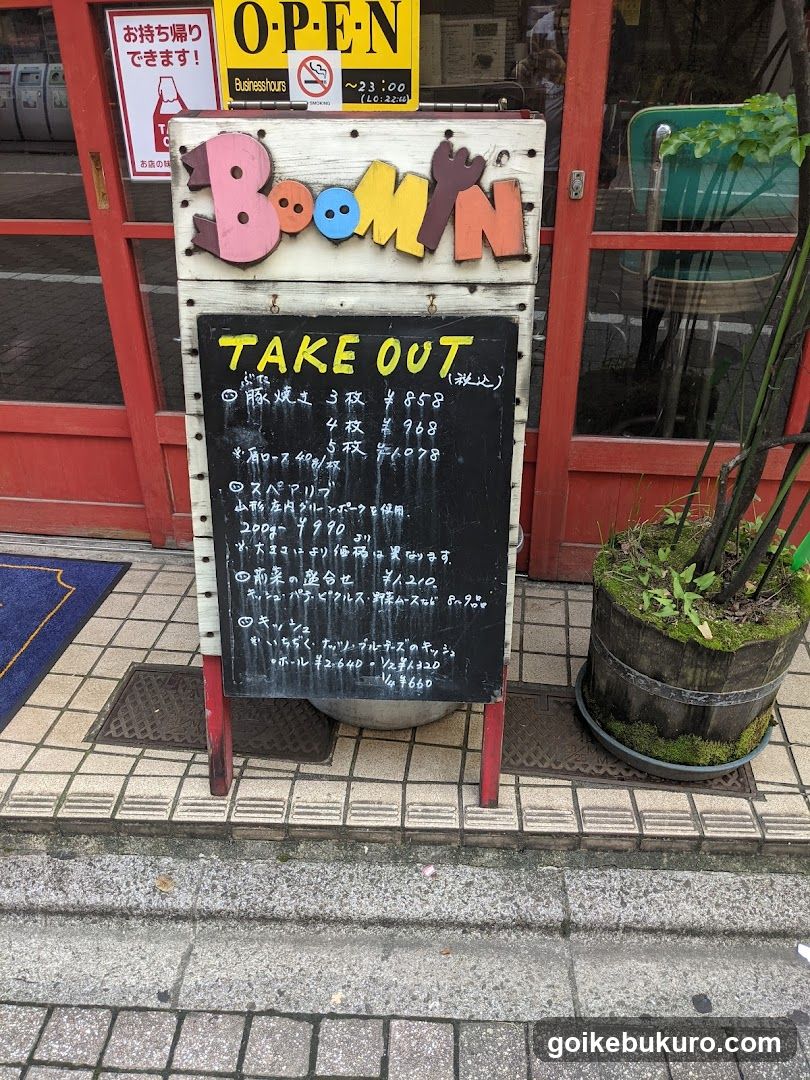 お持ち帰り
できます!
お店の味
O·P·E·N
Business hours
~23:00
(LO:22:00)
SMOKING
BOOMIN
TAKE OUT
(税込)
ぶた
豚焼き 3枚 ¥858
4枚 ¥968
5枚 ¥1,078
※肩ロース40g/枚
スペアリブ
山形庄内グリーンポークを使用.
200gr ¥990
より
※大きさにより価格は異なります.
前菜の盛合せ ¥1,210.
キッシュ・パテ・ピクルス・野菜ムースなど 8~9品
キッシュ
※いちぢく・ナッツ・ブルーチーズのキッシュ
•ホール ¥2,640 • 1/2 ¥1,320
1/4 ¥660
goikebukuro.com